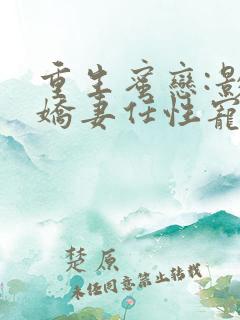 重生蜜戀:影
嬌妻任性寵
楚原
未经同意禁止转载